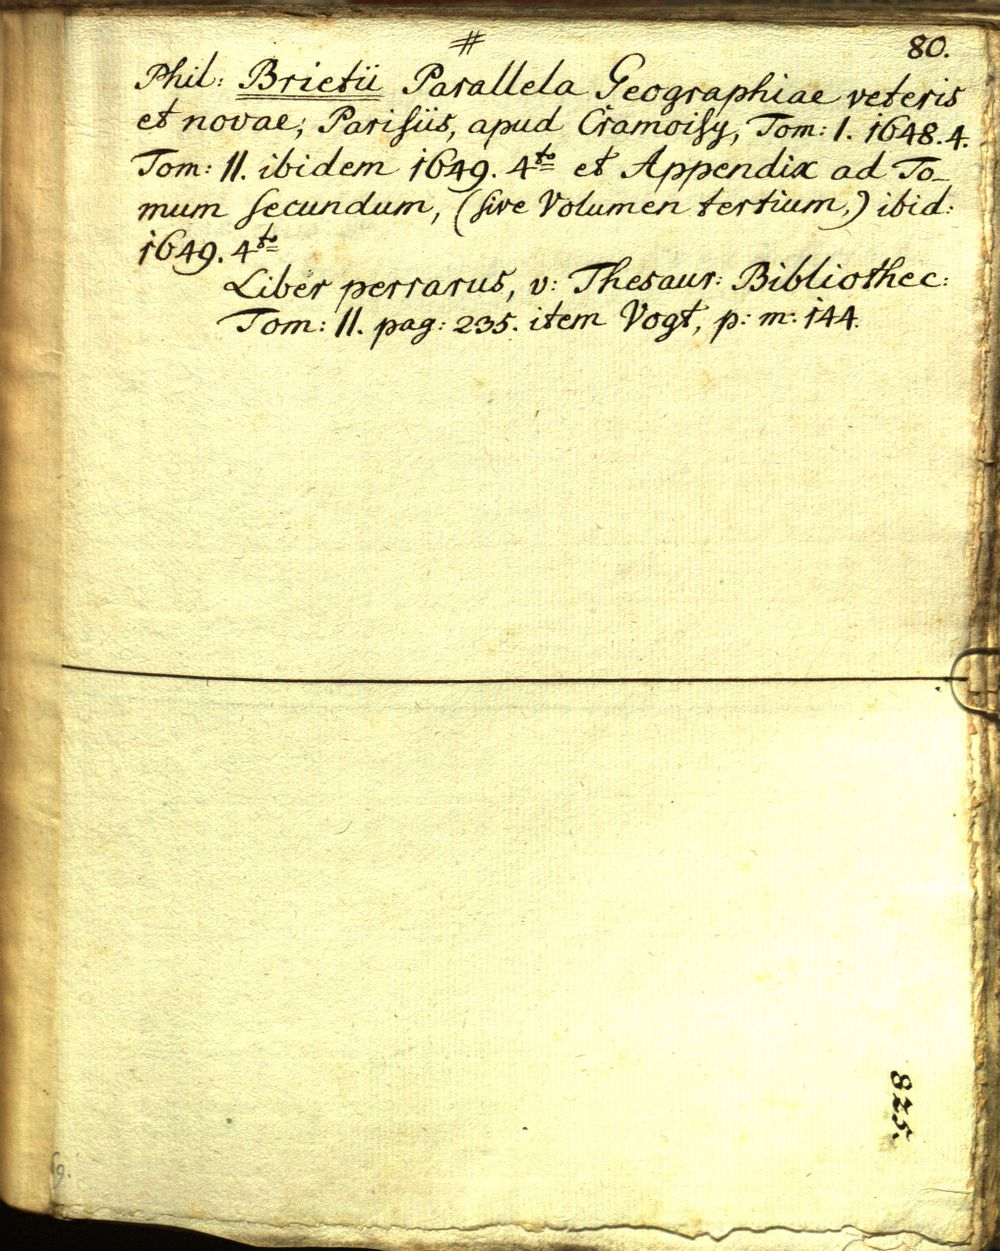 #
80.
Phil: Brietii Parallela Geographiae veteris
et novae; Parisiis, apud Cramoisy, Tom: I. 1648. 4.
Tom: II. ibidem 1649. 4to et Appendix ad To-
mum secundum, (sive Volumen tertium,) ibid:
1649. 4to
Liber perrarus, v: Thesaur: Bibliothec:
Tom: II. pag: 235. item Vogt, p: m: 144.
825.